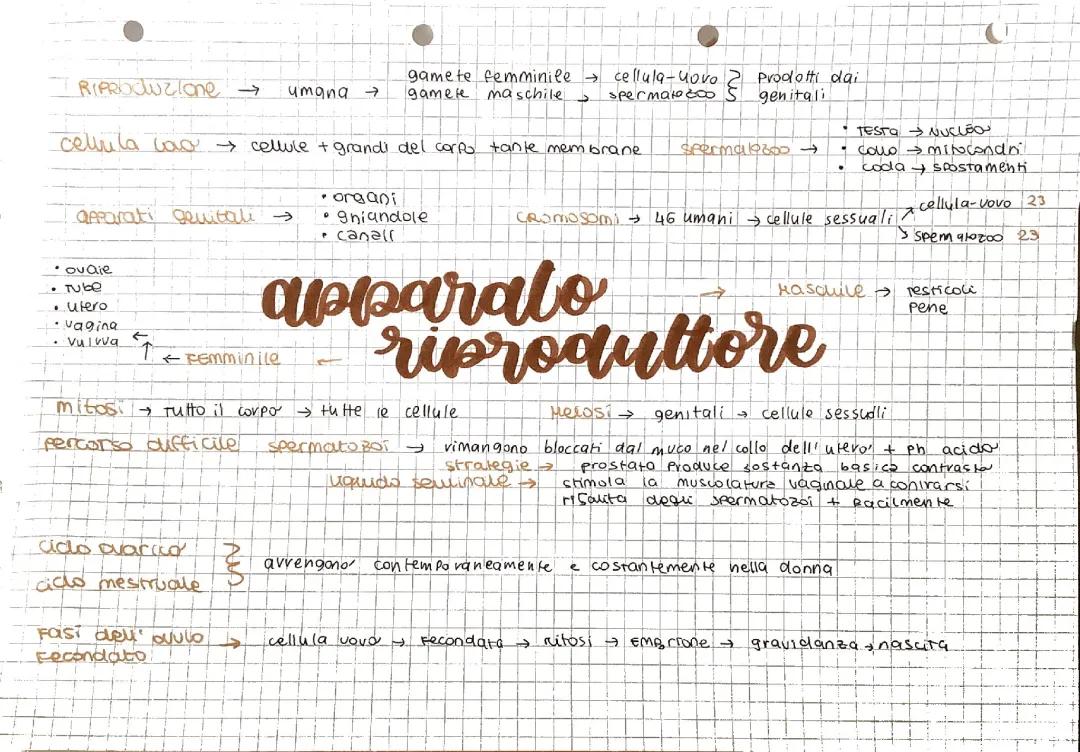 RIPRODUZIONE → umana → gamete femminile → cellula-uovo } Prodotti dai
gamete maschile → spermatozoo } genitali
cellula uovo → cellule + grandi del corpo tante membrane
spermatozoo → • TESTA → NUCLEO
• collo → mitocondri
• coda → spostamenti
apparati genitali → • organi
• ghiandole
• canali
CROMOSOMI → 46 umani → cellule sessuali ↗ cellula-uovo 23
↘ spermatozoo 23
• ovaie
• Tube
• utero
• vagina
• vulva
← FEMMINILE ←
apparato
riproduttore
→ MASCHILE → Testicoli
Pene
mitosi → Tutto il corpo → tutte le cellule
Meiosi → genitali → cellule sessuali
percorso difficile spermatozoi → rimangono bloccati dal muco nel collo dell'utero + Ph acido
strategie → prostata produce sostanza basica contrasta
liquido seminale → stimola la muscolatura vaginale a contrarsi
risalita degli spermatozoi + facilmente
ciclo ovarico }
ciclo mestruale } avvengono contemporaneamente e costantemente nella donna
Fasi dell'ovulo → cellula uovo → Fecondata → Mitosi → EMBRIONE → gravidanza → nascita
Fecondato